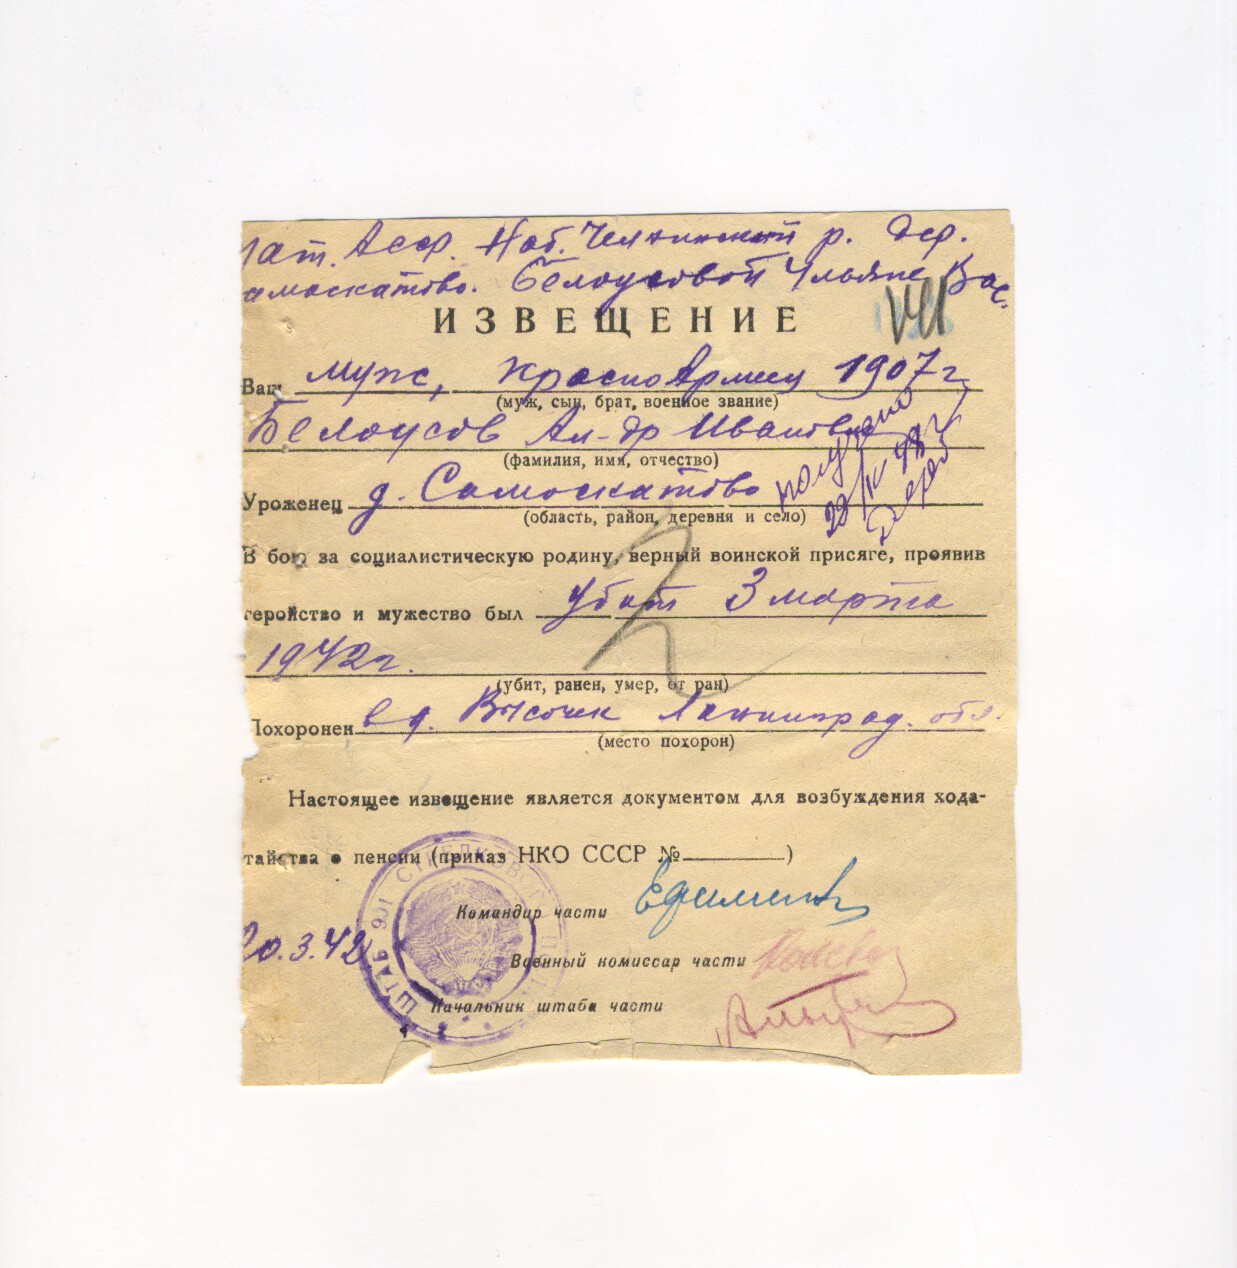 Тат. Асср. Наб. Челнинский р. дер.
амоскатово. Белоусовой Ульяне Вас.
ИЗВЕЩЕНИЕ
Ваш муж, красноармеец 1907 г
(муж, сын, брат, военное звание)
Белоусов Ал-др Иванович
(фамилия, имя, отчество)
Уроженец д. Самоскатово
(область, район, деревня и село)
получено
29/IV 42 г
В бою за социалистическую родину, верный воинской присяге, проявив
геройство и мужество был убит 3 марта
1942 г.
(убит, ранен, умер, от ран)
Похоронен в д. Височек Ленинград. обл.
(место похорон)
Настоящее извещение является документом для возбуждения хода-
тайства о пенсии (приказ НКО СССР №)
ШТАБ 901 СТРЕЛКОВОГО
Командир части
20.3.42
Военный комиссар части
Начальник штаба части